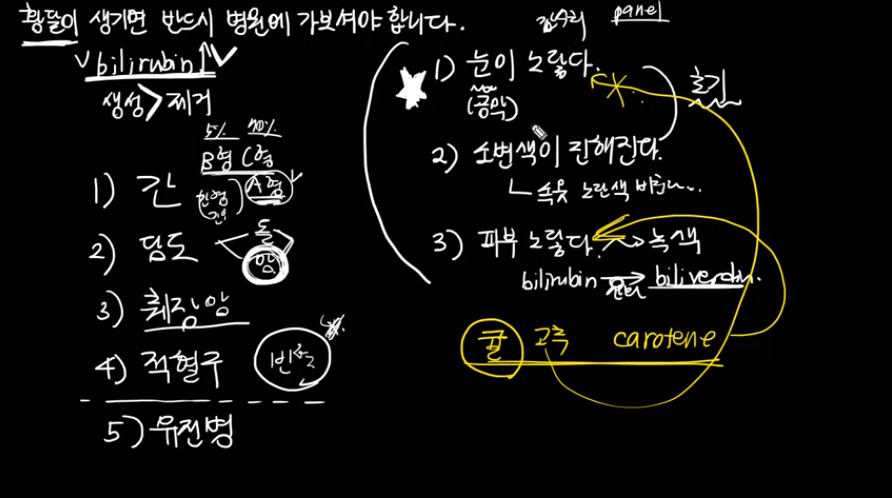 황달이 생기면 반드시 병원에 가보셔야 합니다.
panel
bilirubin↑
생성 > 제거
5% 70%
B형 C형
1) 간
A형
2) 담도
돌
암
3) 췌장암
4) 적혈구
빈혈
5) 유전병
1) 눈이 노랗다.
(공막)
초기
2) 소변색이 진해진다.
속옷 노란색 비친
3) 피부 노랗다. → 녹색
bilirubin → biliverdin.
귤 고추 carotene